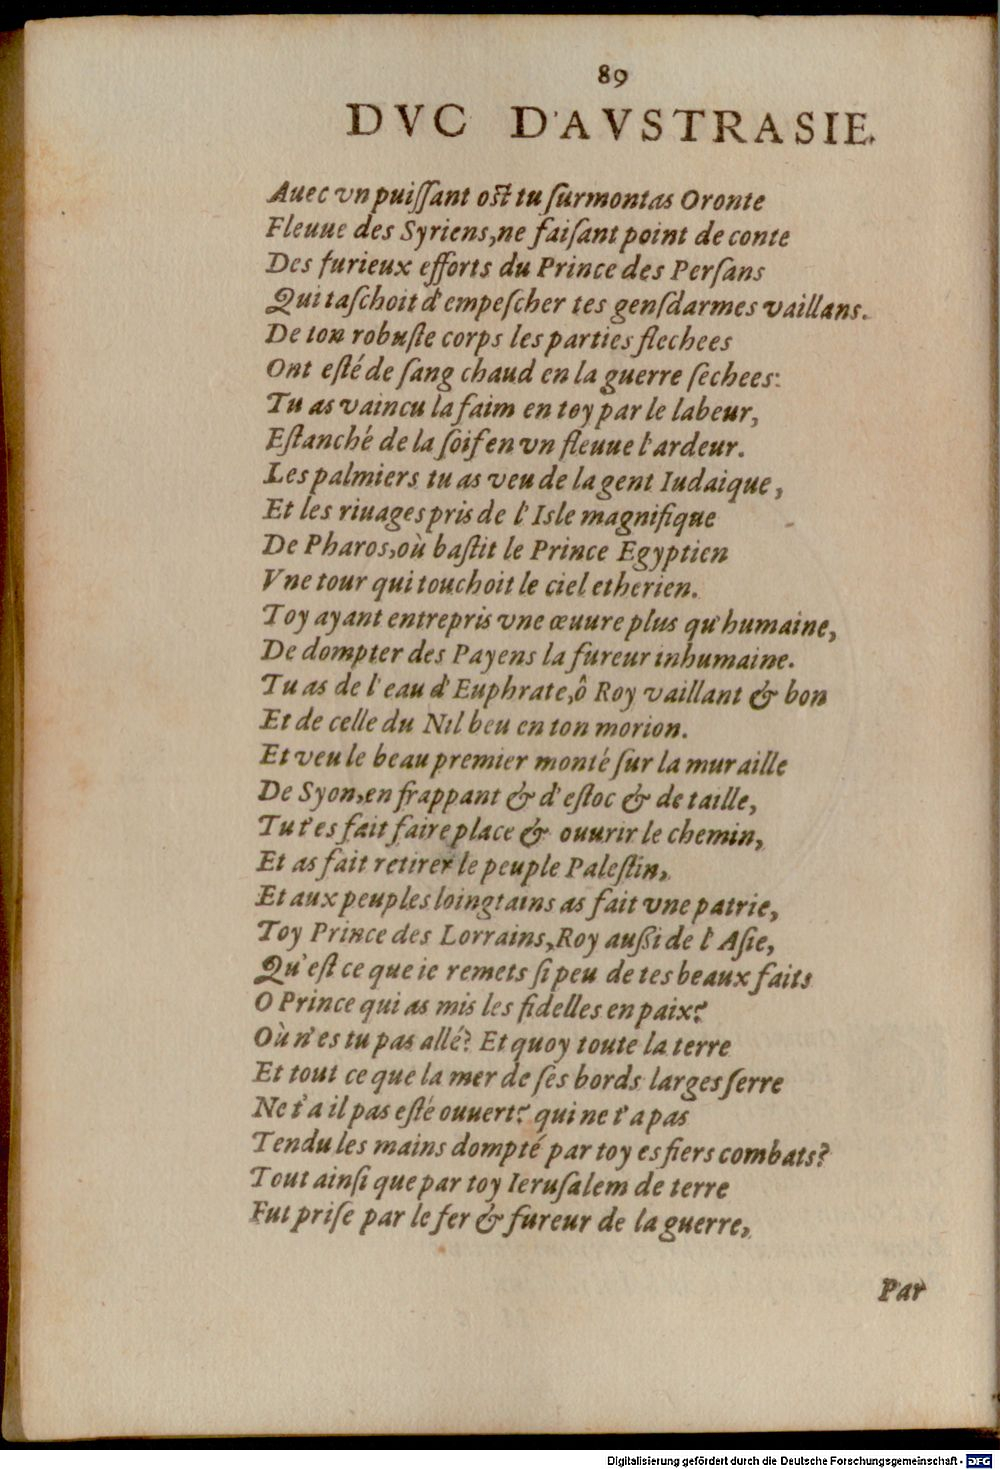 89
DVC D'AVSTRASIE.
Auec vn puiſſant oſt tu ſurmontas Oronte
Fleuue des Syriens, ne faiſant point de conte
Des furieux efforts du Prince des Perſans
Qui taſchoit d'empeſcher tes genſdarmes vaillans.
De ton robuſte corps les parties flechees
Ont eſté de ſang chaud en la guerre ſechees:
Tu as vaincu la faim en toy par le labeur,
Eſtanché de la ſoif en vn fleuue l'ardeur.
Les palmiers tu as veu de la gent Iudaique,
Et les riuages pris de l'Isle magnifique
De Pharos, où baſtit le Prince Egyptien
Vne tour qui touchoit le ciel etherien.
Toy ayant entrepris vne œuure plus qu'humaine,
De dompter des Payens la fureur inhumaine.
Tu as de l'eau d'Euphrate, ô Roy vaillant & bon
Et de celle du Nil beu en ton morion.
Et veu le beau premier monté ſur la muraille
De Syon, en frappant & d'eſtoc & de taille,
Tu t'es fait faire place & ouurir le chemin,
Et as fait retirer le peuple Paleſtin,
Et aux peuples loingtains as fait vne patrie,
Toy Prince des Lorrains, Roy außi de l'Aſie,
Qu'eſt ce que ie remets ſi peu de tes beaux faits
O Prince qui as mis les fidelles en paix?
Où n'es tu pas allé? Et quoy toute la terre
Et tout ce que la mer de ſes bords larges ſerre
Ne t'a il pas eſté ouuert? qui ne t'a pas
Tendu les mains dompté par toy es fiers combats?
Tout ainſi que par toy Ieruſalem de terre
Fut priſe par le fer & fureur de la guerre,
Par
Digitalisierung gefördert durch die Deutsche Forschungsgemeinschaft - DFG